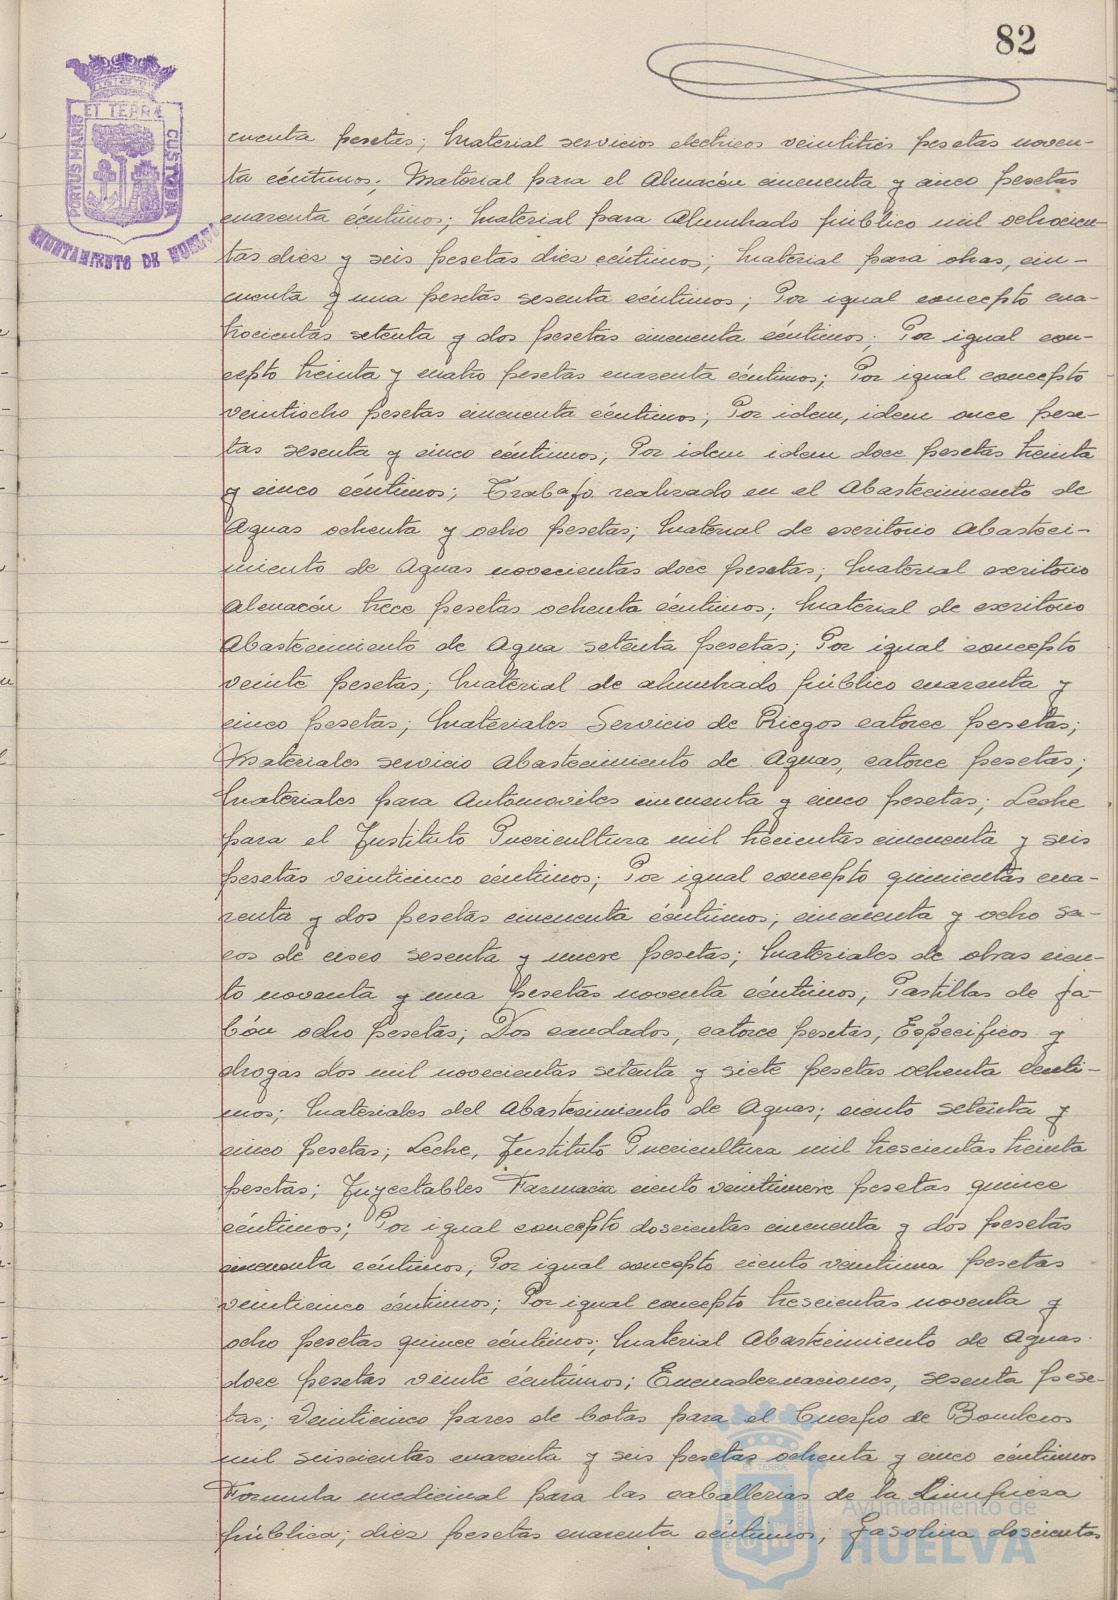 82
ET TERRÆ
PORTUS MARIS
CUSTODIA
AYUNTAMIENTO DE HUELVA
cuenta pesetas; Material servicios electricos veintitrés pesetas noven-
ta céntimos; Material para el Almacén cincuenta y cinco pesetas
cuarenta céntimos; Material para Alumbrado público mil ochocien-
tas diez y seis pesetas diez céntimos; Material para obras, cin-
cuenta y una pesetas sesenta céntimos; Por igual concepto cua-
trocientas setenta y dos pesetas cincuenta céntimos; Por igual con-
cepto treinta y cuatro pesetas cuarenta céntimos; Por igual concepto
veintiocho pesetas cincuenta céntimos; Por idem, idem once pese-
tas sesenta y cinco céntimos; Por idem idem doce pesetas treinta
y cinco céntimos; Trabajo realizado en el Abastecimiento de
Aguas ochenta y ocho pesetas; Material de escritorio Abasteci-
miento de Aguas novecientas doce pesetas; Material escritorio
Almacén trece pesetas ochenta céntimos; Material de escritorio
Abastecimiento de Agua setenta pesetas; Por igual concepto
veinte pesetas; Material de alumbrado público cuarenta y
cinco pesetas; Materiales Servicio de Riegos catorce pesetas;
Materiales servicio Abastecimiento de Aguas, catorce pesetas;
Materiales para Automoviles cincuenta y cinco pesetas; Leche
para el Instituto Puericultura mil trecientas cincuenta y seis
pesetas veinticinco céntimos; Por igual concepto quinientas cua-
renta y dos pesetas cincuenta céntimos; cincuenta y ocho sa-
cos de cisco sesenta y nueve pesetas; Materiales de obras cien-
to noventa y una pesetas noventa céntimos; Pastillas de ja-
bón ocho pesetas; Dos candados, catorce pesetas, Especificos y
drogas dos mil novecientas setenta y siete pesetas ochenta cénti-
mos; Materiales del Abastecimiento de Aguas; ciento setenta y
cinco pesetas; Leche, Instituto Puericultura mil trescientas treinta
pesetas; Inyectables Farmacia ciento veintinueve pesetas quince
céntimos; Por igual concepto doscientas cincuenta y dos pesetas
cincuenta céntimos, Por igual concepto ciento veintiuna pesetas
veinticinco céntimos; Por igual concepto trescientas noventa y
ocho pesetas quince céntimos; Material Abastecimiento de Aguas
doce pesetas veinte céntimos; Encuadernaciones, sesenta pese-
tas; Veinticinco pares de botas para el Cuerpo de Bomberos
mil seiscientas cuarenta y seis pesetas ochenta y cinco céntimos
Formula medicinal para las caballerias de la Limpieza
pública; diez pesetas cuarenta céntimos; Gasolina doscientas
Ayuntamiento de
HUELVA